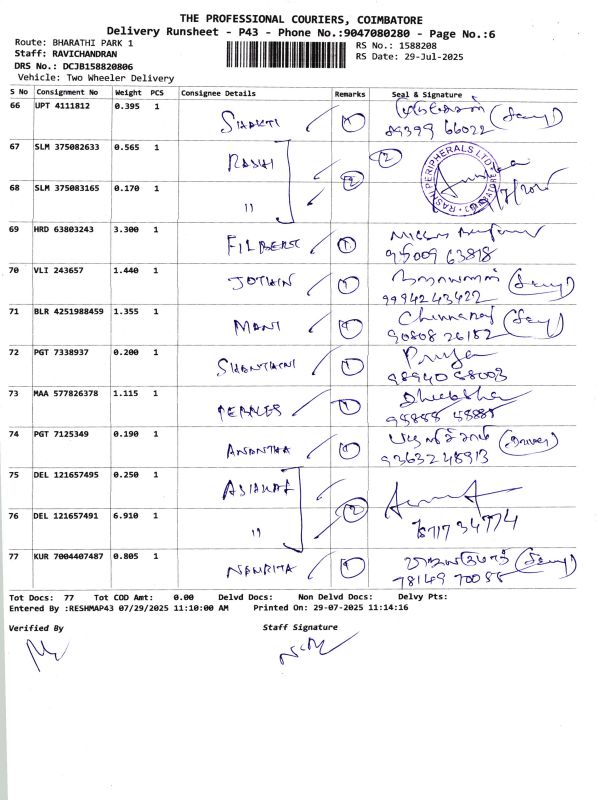 THE PROFESSIONAL COURIERS, COIMBATORE
Delivery Runsheet - P43 - Phone No.:9047080280 - Page No.:6
Route: BHARATHI PARK 1
Staff: RAVICHANDRAN
DRS No.: DCJB158820806
Vehicle: Two Wheeler Delivery
RS No.: 1588208
RS Date: 29-Jul-2025
S No Consignment No Weight PCS Consignee Details Remarks Seal & Signature
66 UPT 4111812 0.395 1 SHAKTI 1
89399 66022
67 SLM 375082633 0.565 1 RASHI 2
RASHI PERIPHERALS LTD
68 SLM 375083165 0.170 1 " 2
69 HRD 63803243 3.300 1 FILBERT 1
95009 63818
70 VLI 243657 1.440 1 JOTHIN 1
99942 43422
71 BLR 4251988459 1.355 1 MANI 1
90808 26182
72 PGT 7338937 0.200 1 SHANTHINI 1 Priya
98940 68003
73 MAA 577826378 1.115 1 PERALES 1 Dheeksha
74 PGT 7125349 0.190 1 ANANTHA 1 (Driver)
93632 48913
75 DEL 121657495 0.250 1
76 DEL 121657491 6.910 1 " 2
77 KUR 7004407487 0.805 1 NAMRITA 1
78149 70088
Tot Docs: 77 Tot COD Amt: 0.00 Delvd Docs: Non Delvd Docs: Delvy Pts:
Entered By :RESHMAP43 07/29/2025 11:10:00 AM Printed On: 29-07-2025 11:14:16
Verified By Staff Signature